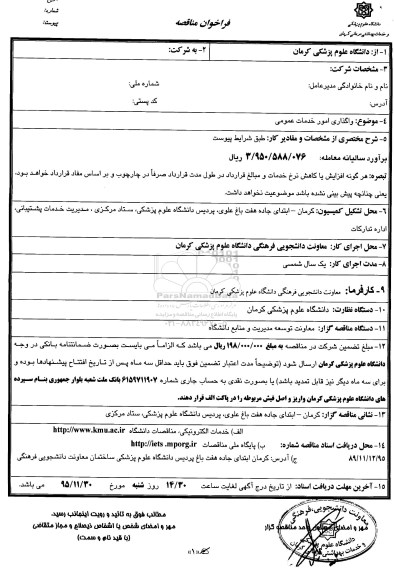 دانشگاه علوم پزشکی
و خدمات بهداشتی درمانی کرمان
فراخوان مناقصه
شماره:
پیوست:
۱- از: دانشگاه علوم پزشکی کرمان
۲- به شرکت:
۳- مشخصات شرکت:
نام و نام خانوادگی مدیرعامل:
شماره ملی:
آدرس:
کد پستی:
۴- موضوع: واگذاری امور خدمات عمومی
۵- شرح مختصری از مشخصات و مقادیر کار: طبق شرایط پیوست
برآورد سالیانه معامله: ۳/۹۵۰/۵۸۸/۰۷۶ ریال
تبصره: هر گونه افزایش یا کاهش نرخ خدمات و مبالغ قرارداد در طول مدت قرارداد صرفاً در چارچوب و بر اساس مفاد قرارداد خواهد بود.
یعنی چنانچه پیش بینی نشده باشد موضوعیت نخواهد داشت.
۶- محل تشکیل کمیسیون: کرمان – ابتدای جاده هفت باغ علوی، پردیس دانشگاه علوم پزشکی، ستاد مرکزی ، مدیریت خدمات پشتیبانی،
اداره تدارکات
۷- محل اجرای کار: معاونت دانشجویی فرهنگی دانشگاه علوم پزشکی کرمان
۸- مدت اجرای کار: یک سال شمسی
۹- کارفرما: معاونت دانشجویی فرهنگی دانشگاه علوم پزشکی کرمان
۱۰- دستگاه نظارت: دانشگاه علوم پزشکی کرمان
۱۱- دستگاه مناقصه گزار: معاونت توسعه مدیریت و منابع دانشگاه
۱۲- مبلغ تضمین شرکت در مناقصه به مبلغ ۱۹۸/۰۰۰/۰۰۰ ریال می باشد که الزاماً می بایست بصورت ضمانتنامه بانکی در وجه
دانشگاه علوم پزشکی کرمان ارسال شود (توضیحاً مدت اعتبار تضمین فوق باید حداقل سه ماه پس از تاریخ افتتاح پیشنهادها بوده و
برای سه ماه دیگر نیز قابل تمدید باشد) یا بصورت نقدی به حساب جاری شماره ۶۱۵۹۷۱۱۹۰۷ بانک ملت شعبه بلوار جمهوری بنام سپرده
های دانشگاه علوم پزشکی کرمان واریز و اصل فیش مربوطه را در پاکت الف قرار دهند.
۱۳- نشانی مناقصه گزار: کرمان – ابتدای جاده هفت باغ علوی، پردیس دانشگاه علوم پزشکی، ستاد مرکزی
۱۴- محل دریافت اسناد مناقصه شماره:
۸۹/۱۱/۱۲/۹۵
الف) خدمات الکترونیکی، مناقصات دانشگاه http://www.kmu.ac.ir
ب) پایگاه ملی مناقصات http://iets.mporg.ir
ج) آدرس: کرمان ابتدای جاده هفت باغ پردیس دانشگاه علوم پزشکی ساختمان معاونت دانشجویی فرهنگی
۱۵- آخرین مهلت دریافت اسناد: از تاریخ درج آگهی لغایت ساعت ۱۴/۳۰ روز شنبه مورخ ۹۵/۱۱/۳۰ می باشد.
مطالب فوق به تائید و رویت اینجانب رسید.
مهر و امضای شخص یا اشخاص ذیصلاح و مجاز متقاضی
(با قید نام و سمت)
معاونت دانشجویی، فرهنگی